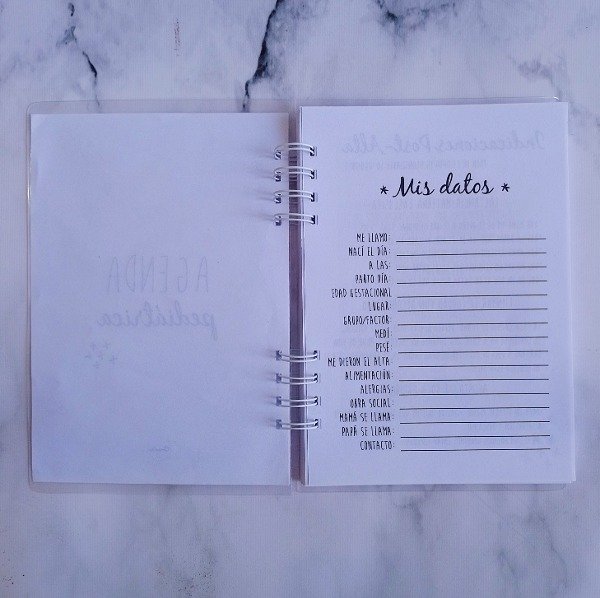 Indicaciones Post-Alta
* Mis datos *
ME LLAMO:
NACÍ EL DÍA:
A LAS:
PARTO DÍA:
EDAD GESTACIONAL
LUGAR:
GRUPO/FACTOR:
MEDÍ:
PESÉ:
ME DIERON EL ALTA:
ALIMENTACIÓN:
ALERGIAS:
OBRA SOCIAL:
MAMÁ SE LLAMA:
PAPÁ SE LLAMA:
CONTACTO:
AGEND
pediátrica